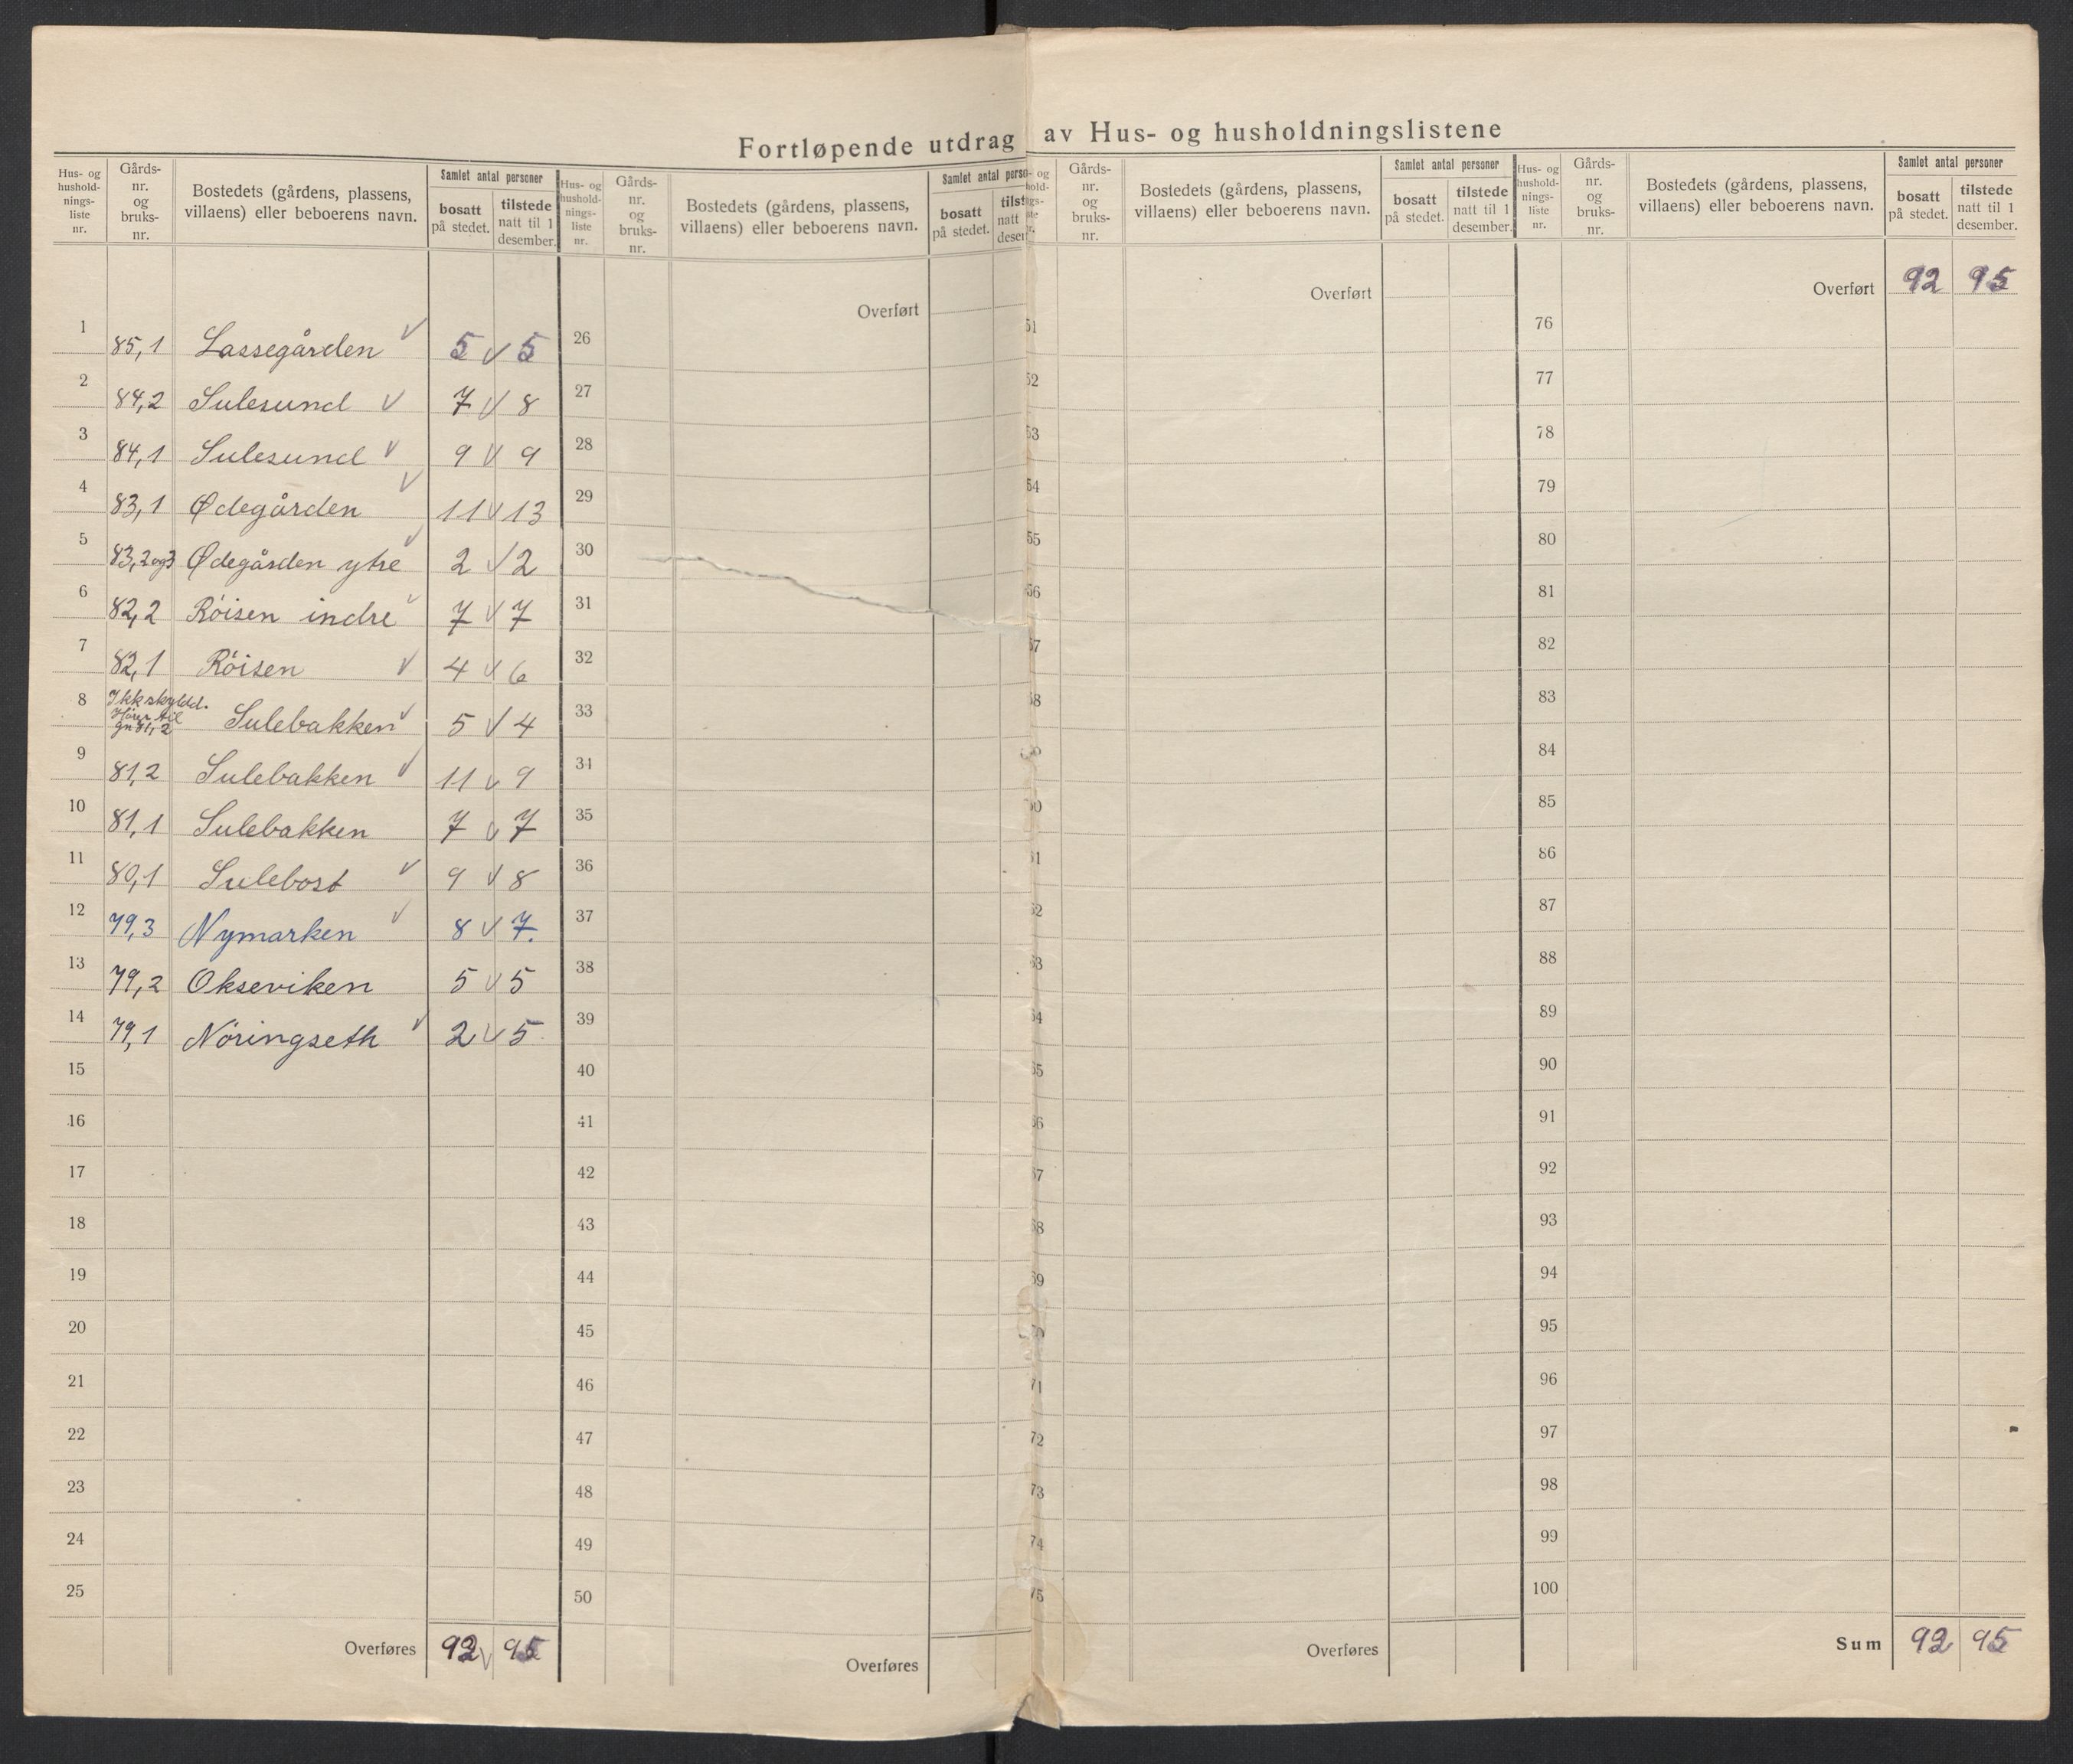 Fortløpende utdrag av Hus- og husholdningslistene
Hus- og hushold- nings- liste nr.
Gårds- nr. og bruks- nr.
Bostedets (gårdens, plassens, villaens) eller beboerens navn.
Samlet antal personer
bosatt på stedet.
tilstede natt til 1 desember.
1 85,1 Lassegården 5 5
2 84,2 Sulesund 7 8
3 84,1 Sulesund 9 9
4 83,1 Ødegården 11 13
5 83,2og3 Ødegården ytre 2 2
6 82,2 Röisen indre 7 7
7 82,1 Röisen 4 6
8 Ikkskyldd. Hører til gn 81,2 Sulebakken 5 4
9 81,2 Sulebakken 11 9
10 81,1 Sulebakken 7 7
11 80,1 Sulebost 9 8
12 79,3 Nymarken 8 7.
13 79,2 Okseviken 5 5
14 79,1 Nöringseth 2 5
15
16
17
18
19
20
21
22
23
24
25
Overføres 92 95
Hus- og hushold- nings- liste nr.
Gårds- nr. og bruks- nr.
Bostedets (gårdens, plassens, villaens) eller beboerens navn.
Samlet antal perso
bosatt på stedet.
tilst natt deser
Overført
26
27
28
29
30
31
32
33
34
35
36
37
38
39
40
41
42
43
44
45
46
47
48
49
50
Overføres
- og hold- ngs- te r.
Gårds- nr. og bruks- nr.
Bostedets (gårdens, plassens, villaens) eller beboerens navn.
Samlet antal personer
bosatt på stedet.
tilstede natt til 1 desember.
Overført
51
52
53
54
55
56
57
58
60
61
62
63
64
65
66
67
68
69
70
71
72
73
74
75
Overføres
Hus- og hushold- nings- liste nr.
Gårds- nr. og bruks- nr.
Bostedets (gårdens, plassens, villaens) eller beboerens navn.
Samlet antal personer
bosatt på stedet.
tilstede natt til 1 desember.
Overført 92 95
76
77
78
79
80
81
82
83
84
85
86
87
88
89
90
91
92
93
94
95
96
97
98
99
100
Sum 92 95